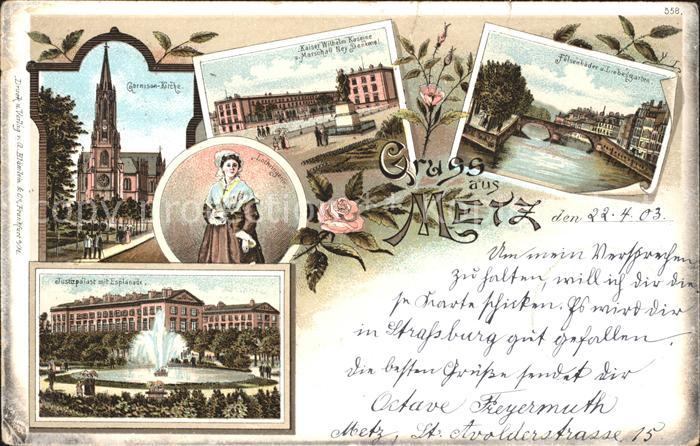 558.
Garnison-Kirche.
Kaiser Wilhelm Kaserne
u. Marschall Ney Denkmal
Felsenbäder u. Liebesgarten.
Lothringerin
Gruss
aus
METZ
den 22.4.03.
Um mein Versprechen
zu halten, will ich dir die
se Karte schicken. Es wird dir
in Straßburg gut gefallen.
Die besten Grüße sendet dir
Octave Freyermuth
Metz, St. Avolderstrasse 15
Justizpalast mit Esplanade.
Druck u. Verlag v. A. Blümlein & Co, Frankfurt a/M.